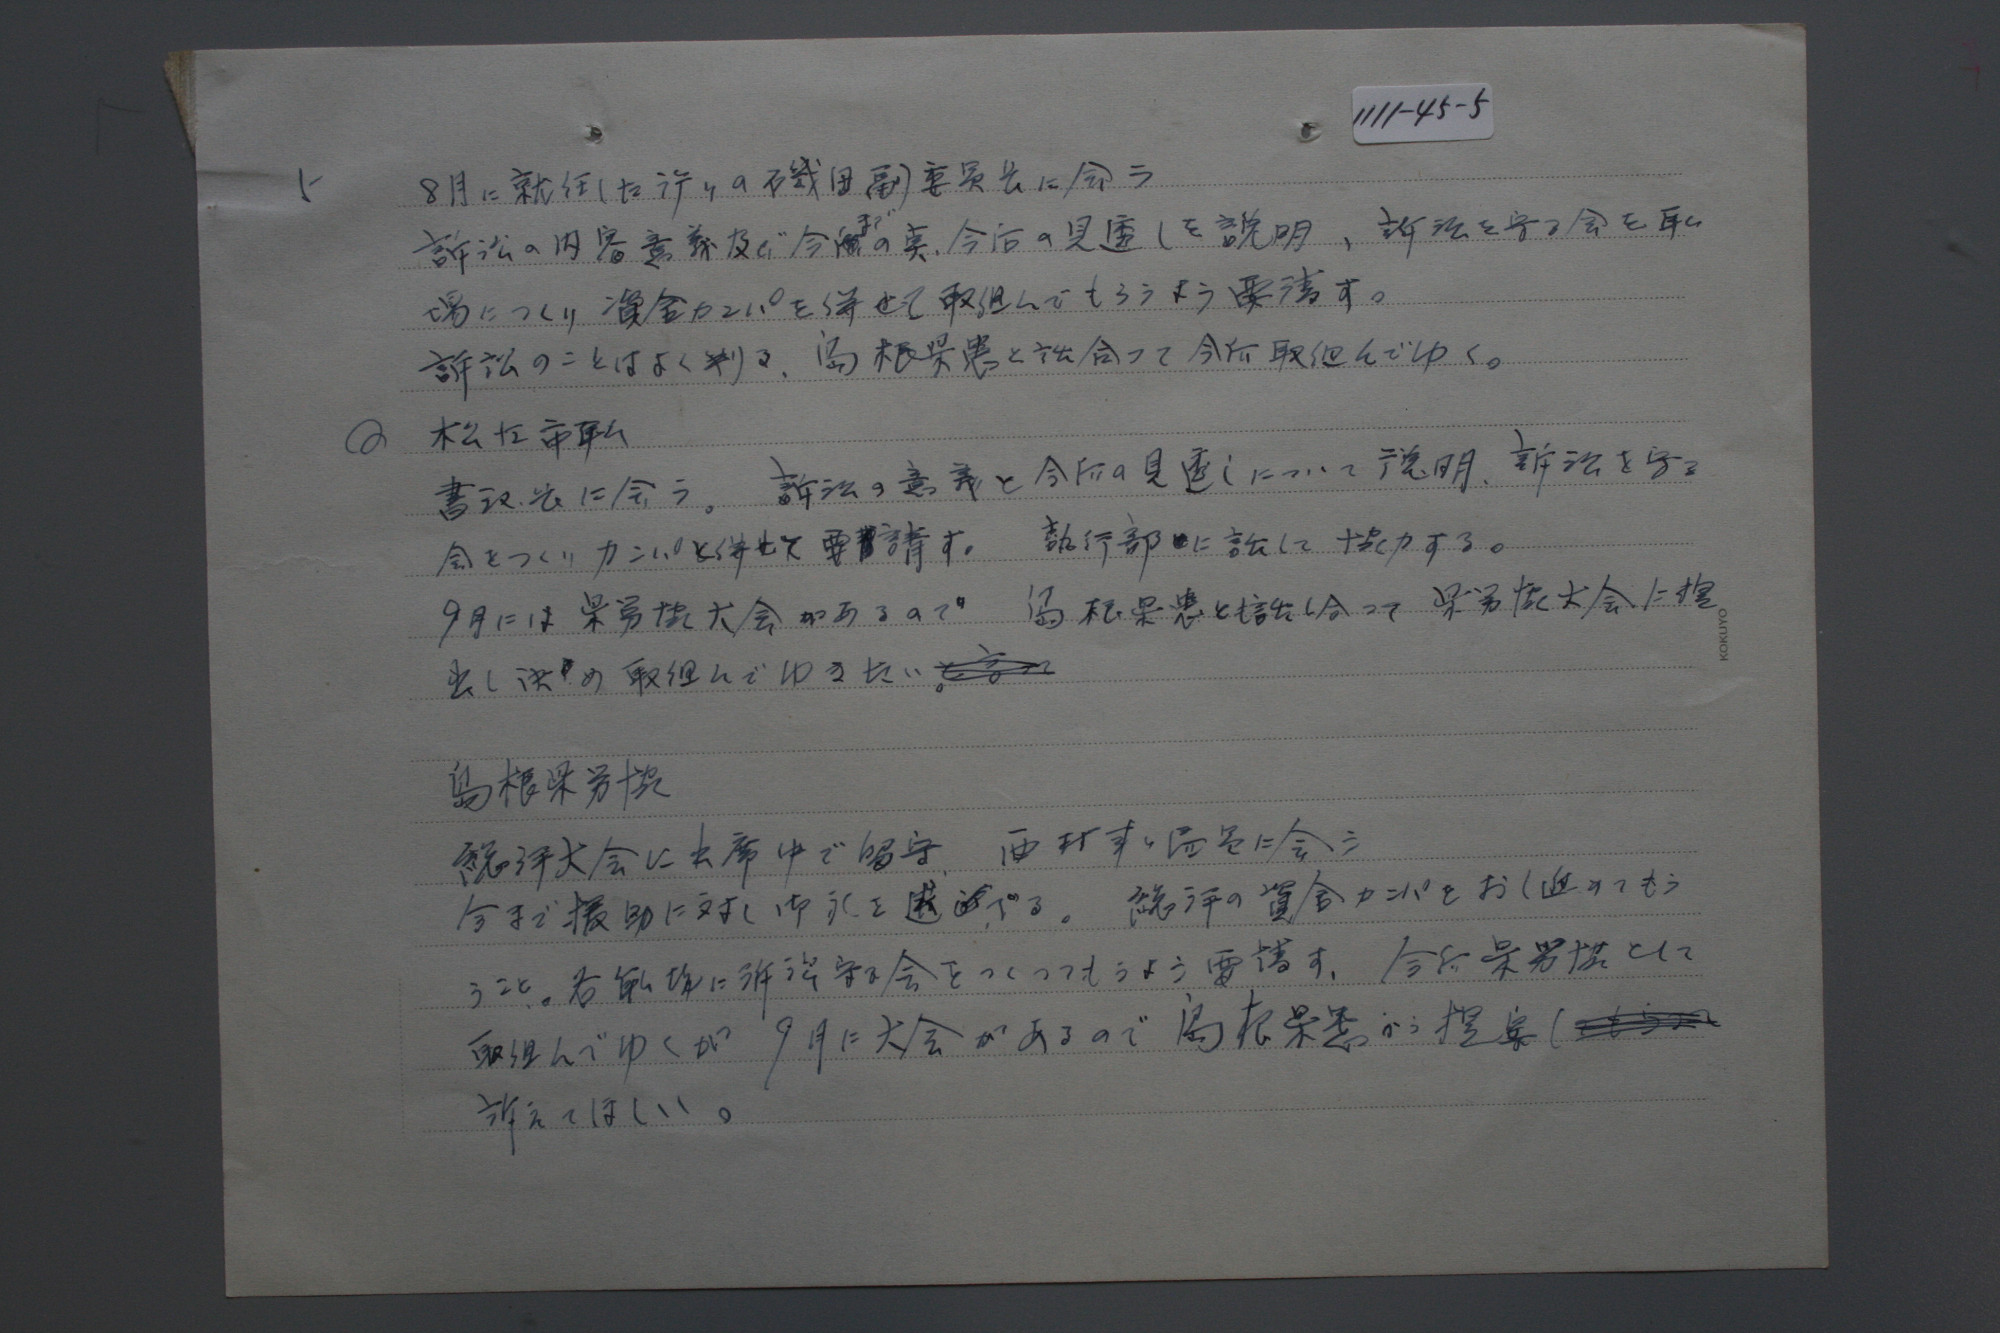 1111-45-5
5
8月に就任した許りの磯田副委員長に会う
訴訟の内容意義及び今までの実、今后の見透しを説明、訴訟を守る会を職
場につくり資金カンパを併せて取組んでもらうよう要請す。
訴訟のことはよく判る、島根県患と話合って今后取組んでゆく。
② 松江市職
書記長に会う。 訴訟の意義と今后の見透しについて説明、訴訟を守る
会をつくりカンパと併せて要請す。 執行部に話して協力する。
9月には県労協大会があるので 島根県患と話し合って県労協大会に提
出し決め取組んでゆきたい。
島根県労協
総評大会に出席中で留守、西村オルグに会う
今まで援助に対し御礼を述べる。 総評の資金カンパをおし進めてもら
うこと。各職場に訴訟守る会をつくってもらよう要請す、 今后県労協として
取組んでゆくが 9月に大会があるので島根県患から提案し
訴えてほしい。
KOKUYO